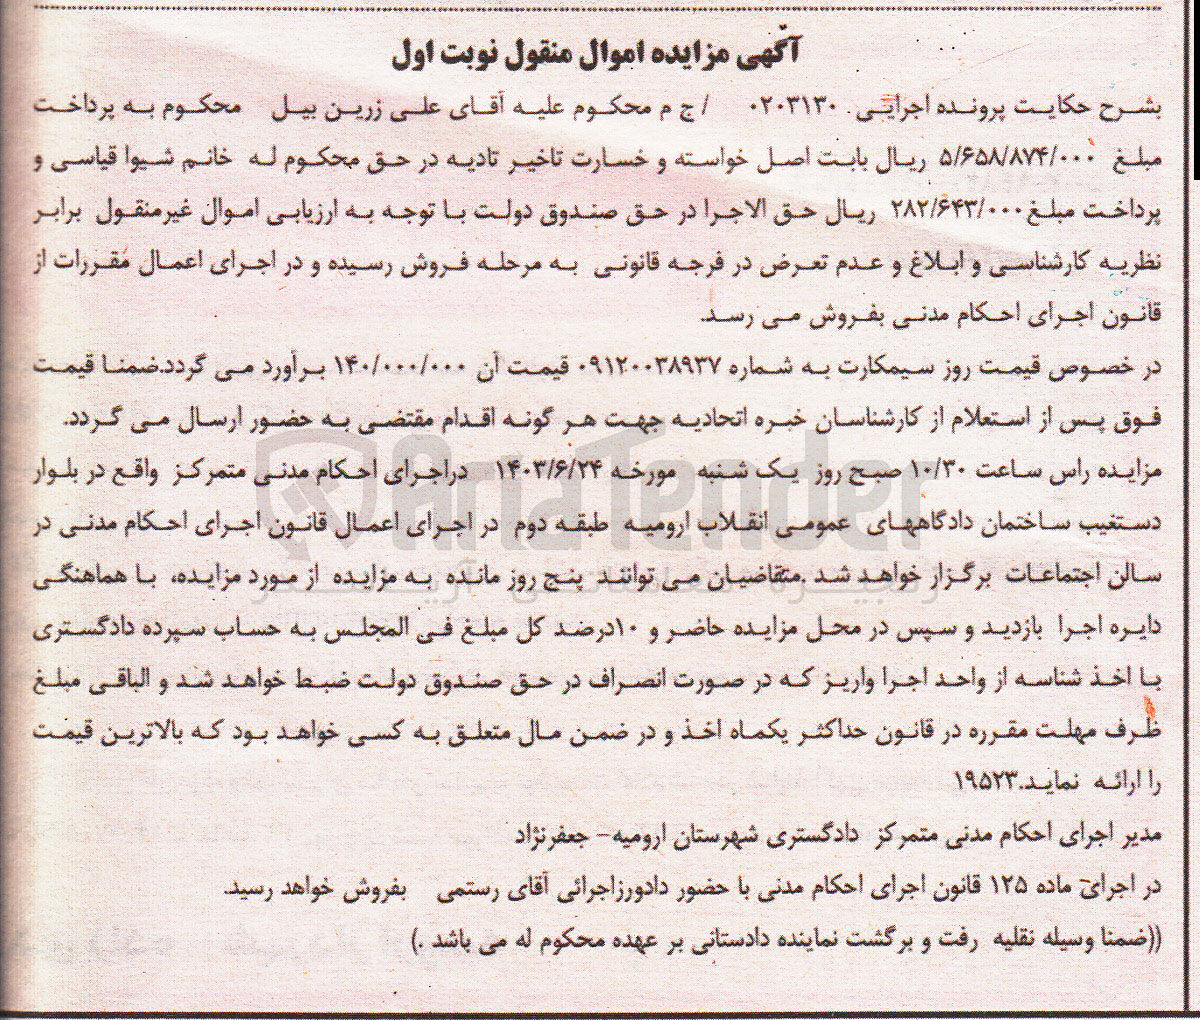 آگهی مزایده اموال منقول نوبت اول
بشرح حکایت پرونده اجرایی ۰۲۰۳۱۳۰ / ج م محکوم علیه آقای علی زرین بیل محکوم به پرداخت
مبلغ ۵/۶۵۸/۸۷۴/۰۰۰ ریال بابت اصل خواسته و خسارت تاخیر تادیه در حق محکوم له خانم شیوا قیاسی و
پرداخت مبلغ ۲۸۲/۶۴۳/۰۰۰ ریال حق الاجرا در حق صندوق دولت با توجه به ارزیابی اموال غیرمنقول برابر
نظریه کارشناسی و ابلاغ و عدم تعرض در فرجه قانونی به مرحله فروش رسیده و در اجرای اعمال مقررات از
قانون اجرای احکام مدنی بفروش می رسد.
در خصوص قیمت روز سیمکارت به شماره ۰۹۱۲۰۰۳۸۹۳۷ قیمت آن ۱۴۰/۰۰۰/۰۰۰ برآورد می گردد.ضمنا قیمت
فوق پس از استعلام از کارشناسان خبره اتحادیه جهت هر گونه اقدام مقتضی به حضور ارسال می گردد.
مزایده راس ساعت ۱۰/۳۰ صبح روز یک شنبه مورخه ۱۴۰۳/۶/۲۴ دراجرای احکام مدنی متمرکز واقع در بلوار
دستغیب ساختمان دادگاههای عمومی انقلاب ارومیه طبقه دوم در اجرای اعمال قانون اجرای احکام مدنی در
سالن اجتماعات برگزار خواهد شد .متقاضیان می توانند پنج روز مانده به مزایده از مورد مزایده، با هماهنگی
دایره اجرا بازدید و سپس در محل مزایده حاضر و ۱۰درصد کل مبلغ فی المجلس به حساب سپرده دادگستری
با اخذ شناسه از واحد اجرا واریز که در صورت انصراف در حق صندوق دولت ضبط خواهد شد و الباقی مبلغ
ظرف مهلت مقرره در قانون حداکثر یکماه اخذ و در ضمن مال متعلق به کسی خواهد بود که بالاترین قیمت
را ارائه نماید.۱۹۵۲۳
مدیر اجرای احکام مدنی متمرکز دادگستری شهرستان ارومیه– جعفرنژاد
در اجرای ماده ۱۲۵ قانون اجرای احکام مدنی با حضور دادورزاجرائی آقای رستمی بفروش خواهد رسید.
((ضمنا وسیله نقلیه رفت و برگشت نماینده دادستانی بر عهده محکوم له می باشد .)
AriaTender